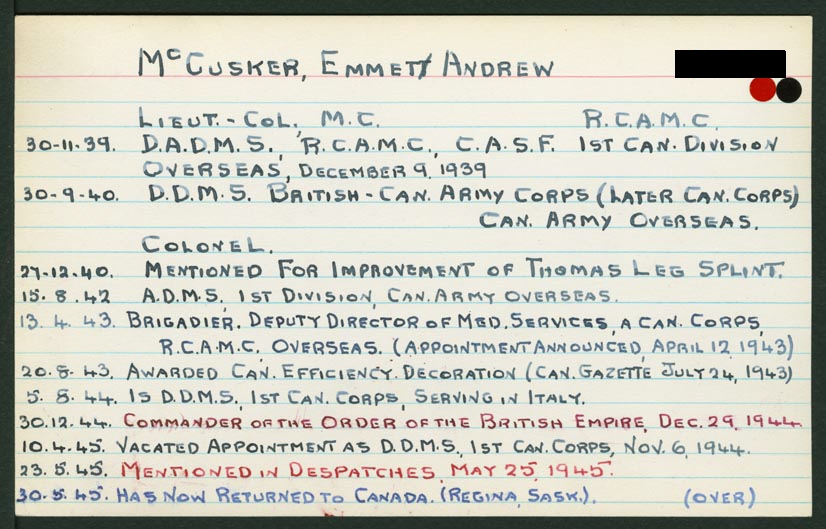 McCUSKER, EMMETT ANDREW
LIEUT.-COL. M.C. R.C.A.M.C.
30-11-39. D.A.D.M.S. R.C.A.M.C., C.A.S.F. 1ST CAN. DIVISION
OVERSEAS, DECEMBER 9, 1939
30-9-40. D.D.M.S. BRITISH-CAN. ARMY CORPS (LATER CAN. CORPS)
CAN. ARMY OVERSEAS.
COLONEL.
27-12-40. MENTIONED FOR IMPROVEMENT OF THOMAS LEG SPLINT.
15. 8. 42 A.D.M.S. 1ST DIVISION, CAN. ARMY OVERSEAS.
13. 4. 43. BRIGADIER. DEPUTY DIRECTOR OF MED. SERVICES, A CAN. CORPS,
R.C.A.M.C. OVERSEAS. (APPOINTMENT ANNOUNCED, APRIL 12, 1943)
20. 8. 43. AWARDED CAN. EFFICIENCY DECORATION (CAN. GAZETTE JULY 24, 1943)
5. 8. 44. IS D.D.M.S., 1ST CAN. CORPS, SERVING IN ITALY.
30.12.44. COMMANDER OF THE ORDER OF THE BRITISH EMPIRE, DEC. 29, 1944.
10.4.45. VACATED APPOINTMENT AS D.D.M.S, 1ST CAN. CORPS, NOV. 6, 1944.
23. 5. 45. MENTIONED IN DESPATCHES, MAY 25, 1945.
30.5.45. HAS NOW RETURNED TO CANADA. (REGINA, SASK.). (OVER)